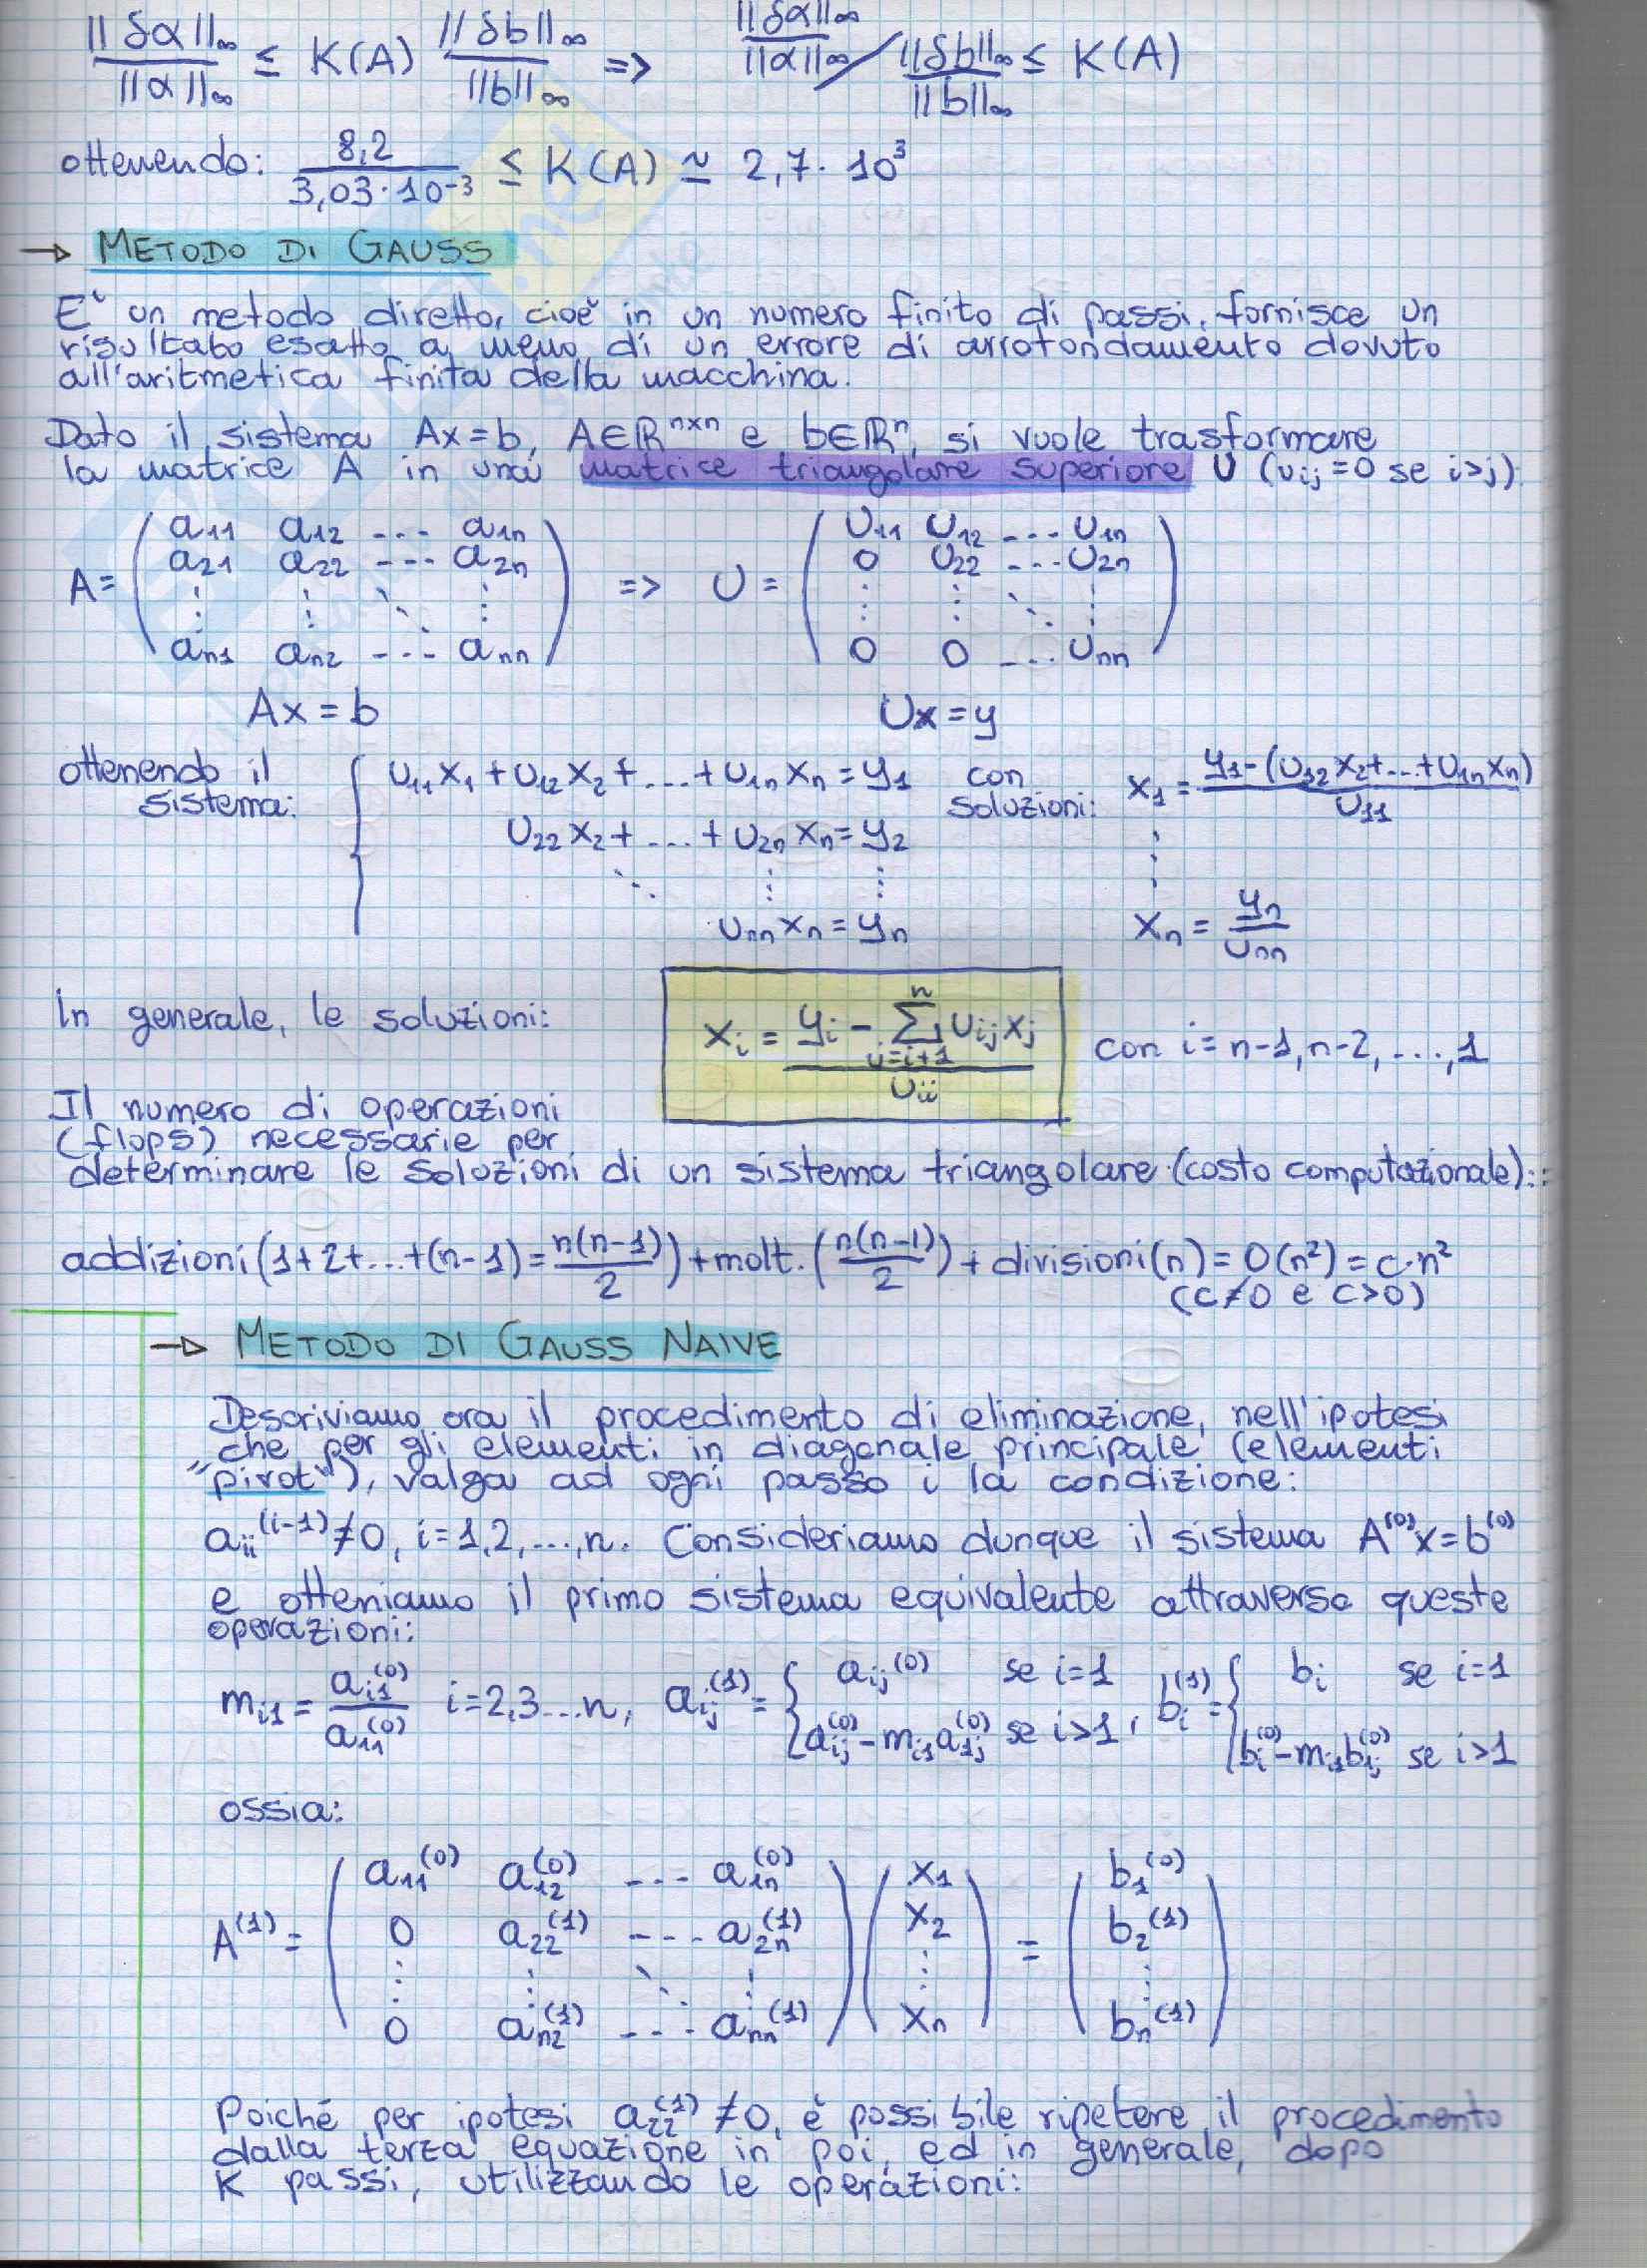 ||δα||∞ / ||α||∞ ≤ K(A) ||δb||∞ / ||b||∞ => ||δα||∞ / ||α||∞ / ||δb||∞ / ||b||∞ ≤ K(A)
ottenendo: 8,2 / 3,03·10⁻³ ≤ K(A) ≃ 2,7·10³
→ METODO DI GAUSS
E' un metodo diretto, cioè in un numero finito di passi, fornisce un
risultato esatto a meno di un errore di arrotondamento dovuto
all'aritmetica finita della macchina.
Dato il sistema Ax=b, A∈ℝⁿˣⁿ e b∈ℝⁿ, si vuole trasformare
la matrice A in una matrice triangolare superiore U (uij=0 se i>j)
A= ( a11 a12 --- a1n ; a21 a22 --- a2n ; ⋮ ⋮ ⋱ ⋮ ; an1 an2 --- ann ) => U = ( U11 U12 --- U1n ; 0 U22 --- U2n ; ⋮ ⋮ ⋱ ⋮ ; 0 0 --- Unn )
Ax=b Ux=y
ottenendo il sistema: { U11x1+U12x2+...+U1nxn=y1 con soluzioni: x1 = y1-(U12x2+...+U1nxn) / U11
U22x2+...+U2nxn=y2 ⋮
⋱ ⋮ ⋮
Unnxn=yn xn = yn / Unn
In generale, le soluzioni: xi = yi - Σ(j=i+1, n) Uijxj / Uii con i=n-1,n-2,...,1
Il numero di operazioni
(flops) necessarie per
determinare le soluzioni di un sistema triangolare (costo computazionale):
addizioni(1+2+...+(n-1)=n(n-1)/2)+molt.(n(n-1)/2)+divisioni(n)=O(n²)=c·n²
(c≠0 e c>0)
→ METODO DI GAUSS NAIVE
Descriviamo ora il procedimento di eliminazione, nell'ipotesi
che per gli elementi in diagonale principale (elementi
"pivot"), valga ad ogni passo i la condizione:
aii^(i-1)≠0, i=1,2,...,n. Consideriamo dunque il sistema A^(0)x=b^(0)
e otteniamo il primo sistema equivalente attraverso queste
operazioni:
mi1 = ai1^(0) / a11^(0) i=2,3...n, aij^(1) = { aij^(0) se i=1 ; aij^(0)-mi1a1j^(0) se i>1 , bi^(1) = { bi se i=1 ; bi^(0)-mi1b1j^(0) se i>1
ossia:
A^(1) = ( a11^(0) a12^(0) --- a1n^(0) ; 0 a22^(1) --- a2n^(1) ; ⋮ ⋮ ⋱ ⋮ ; 0 an2^(1) --- ann^(1) ) ( x1 ; x2 ; ⋮ ; xn ) = ( b1^(0) ; b2^(1) ; ⋮ ; bn^(1) )
Poiché per ipotesi a22^(1)≠0, è possibile ripetere il procedimento
dalla terza equazione in poi, ed in generale, dopo
K passi, utilizzando le operazioni: